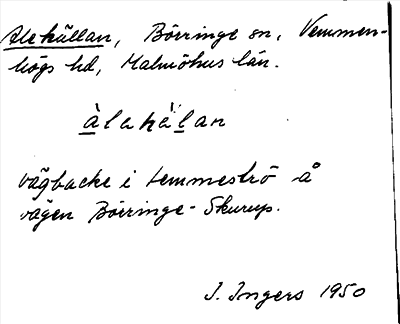 Alekällan, Börringe sn, Vemmen-
högs hd, Malmöhus län.
àlakä̀lan
vägbacke i Lemmeströ å
vägen Börringe - Skurup.
I. Ingers 1950